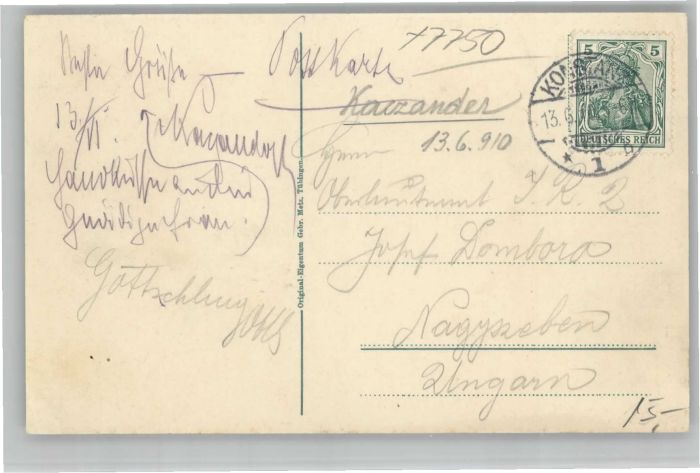 Beste Grüße
13/VI.
Handküsse an die
Gnädige Frau.
Postkarte
+7750
Kaczander
13.6.910
Herrn
Oberleutnant I. R. 2
Josef Dombora
Nagyszeben
Ungarn
15,-
Original-Eigentum Gebr. Metz, Tübingen.
KONSTANZ
13.6.
1
5 5
DEUTSCHES REICH